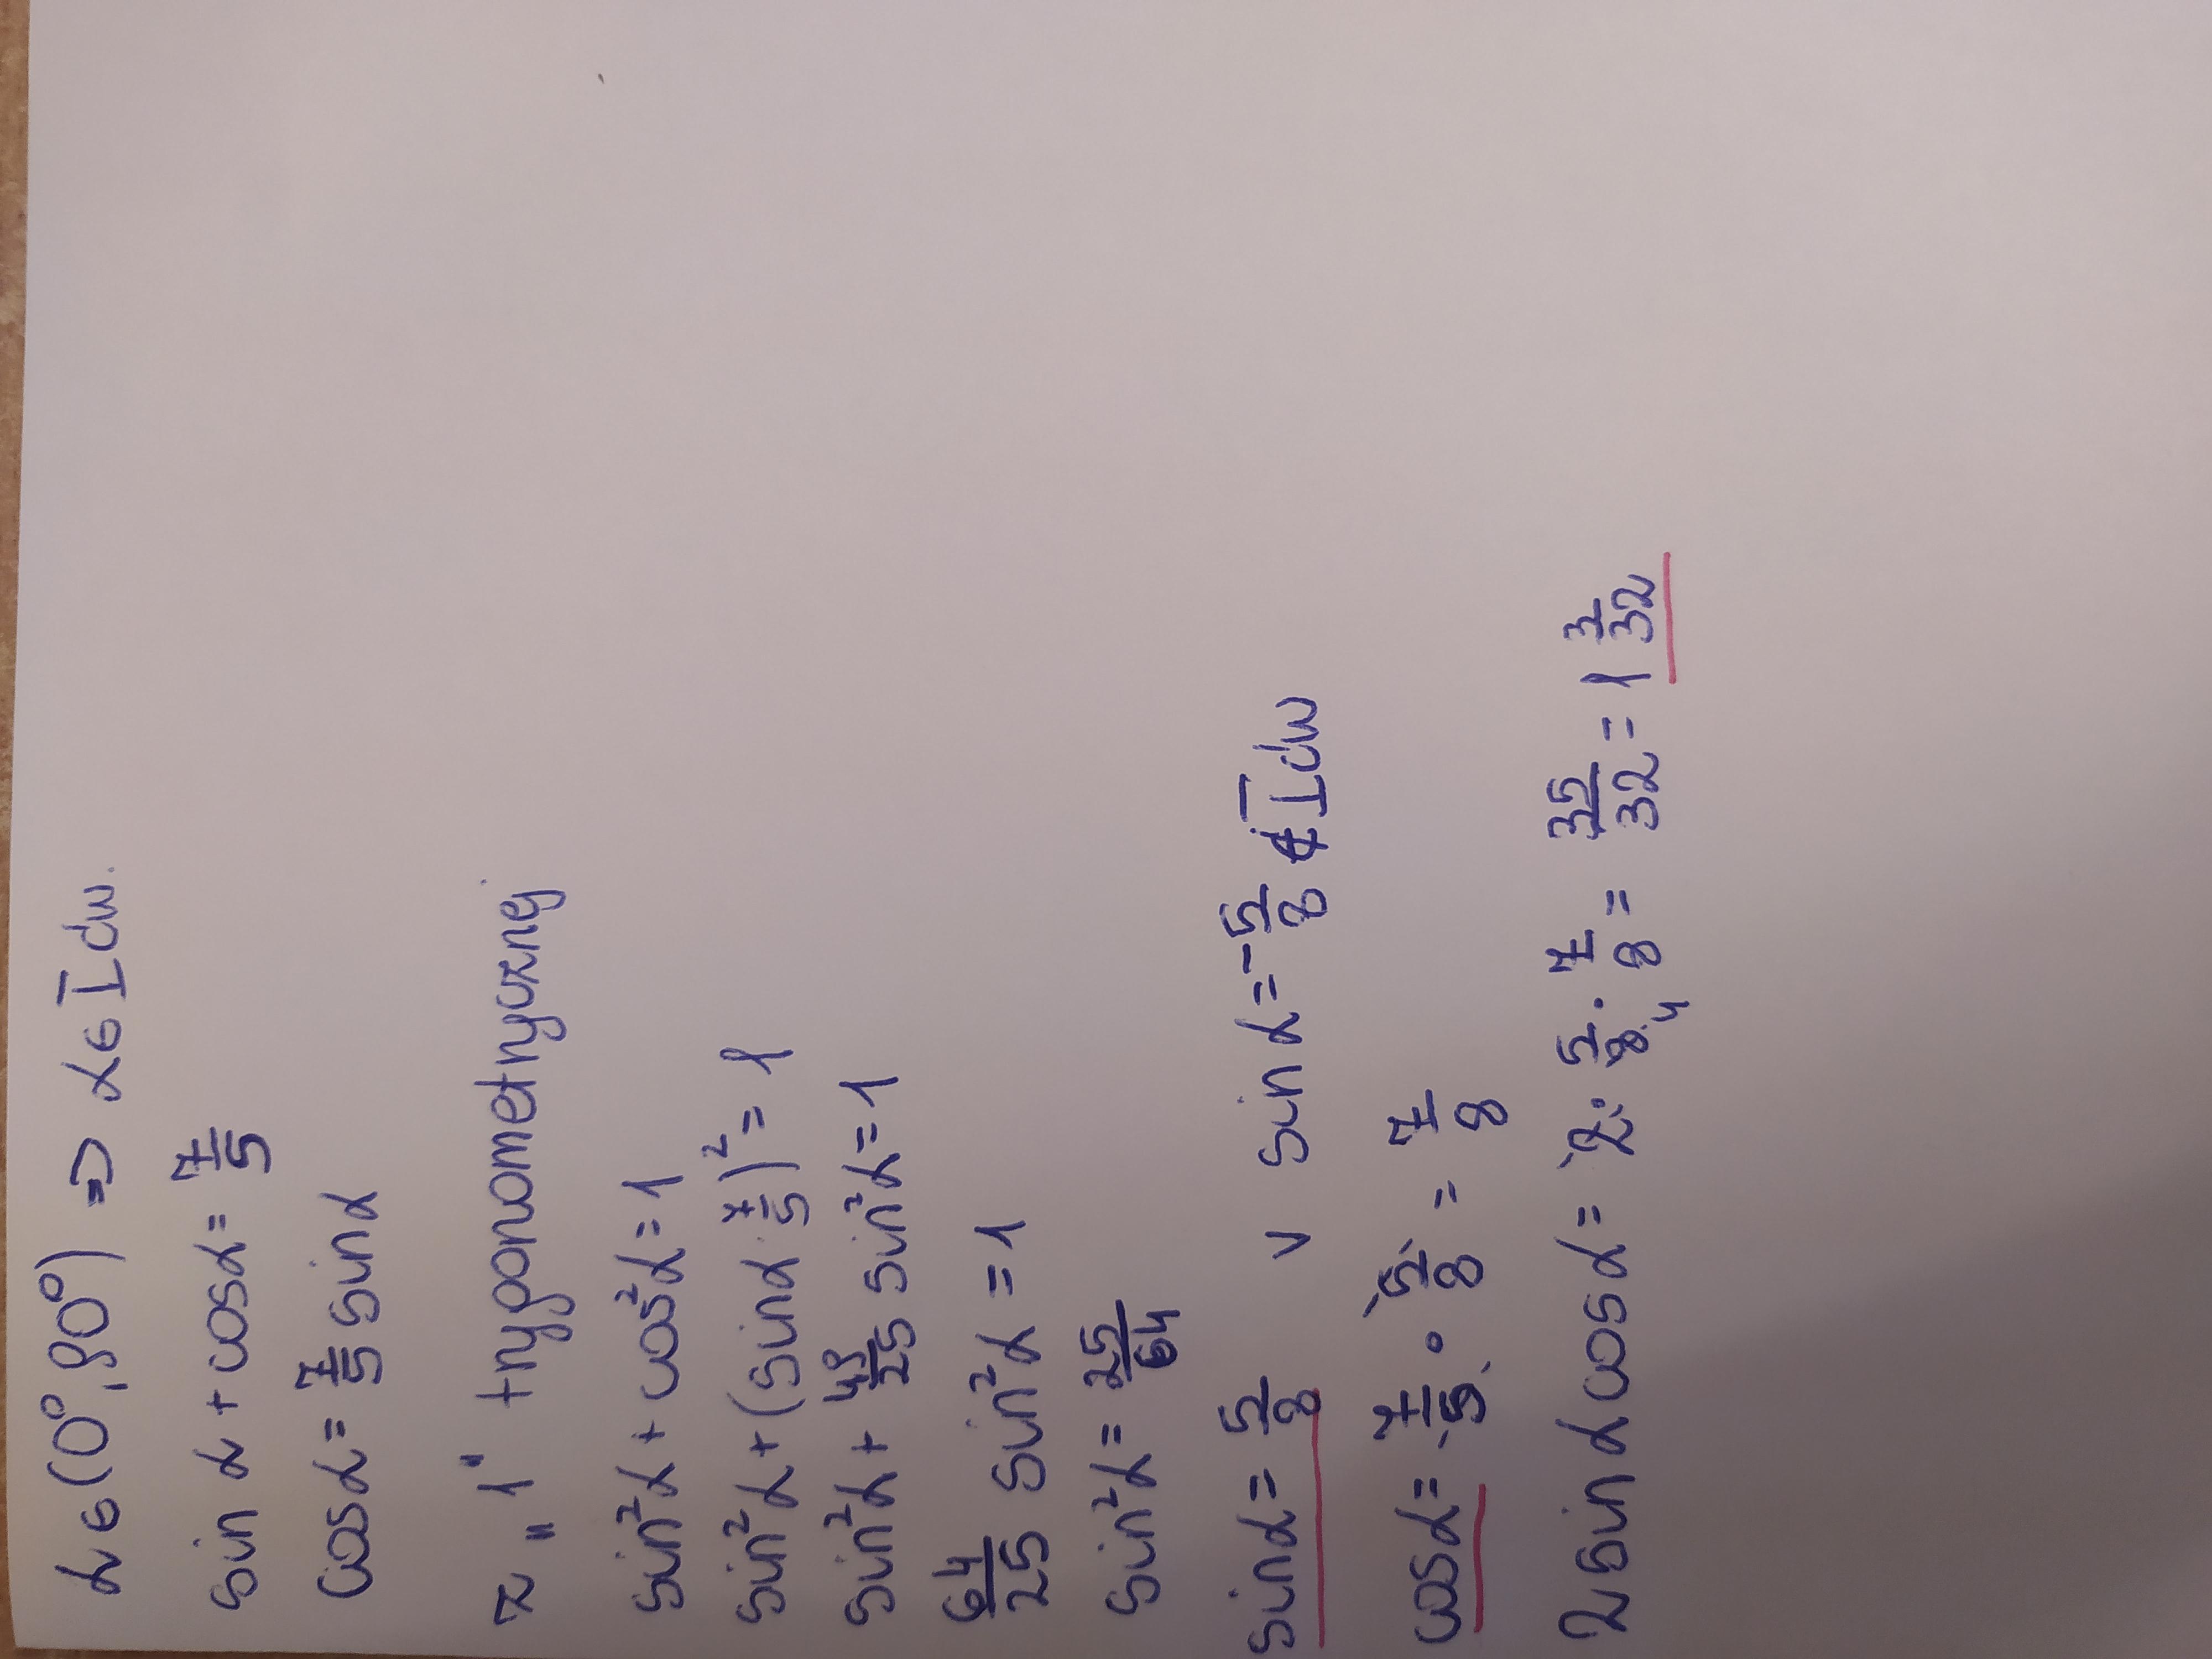 α∈(0°,90°) ⇒ α∈I ćw.
sin α + cosα = 7/5
cosα = 7/5 sinα
z „1" trygonometrycznej
sin²α + cos²α = 1
sin²α + (sinα · 7/5)² = 1
sin²α + 49/25 sin²α = 1
64/25 sin²α = 1
sin²α = 25/64
sinα = 5/8 ∨ sinα = -5/8 ∉ I ćw
cosα = 7/5 · 5/8 = 7/8
2 sinα cosα = 2 · 5/8 4 · 7/8 = 35/32 = 1 3/32